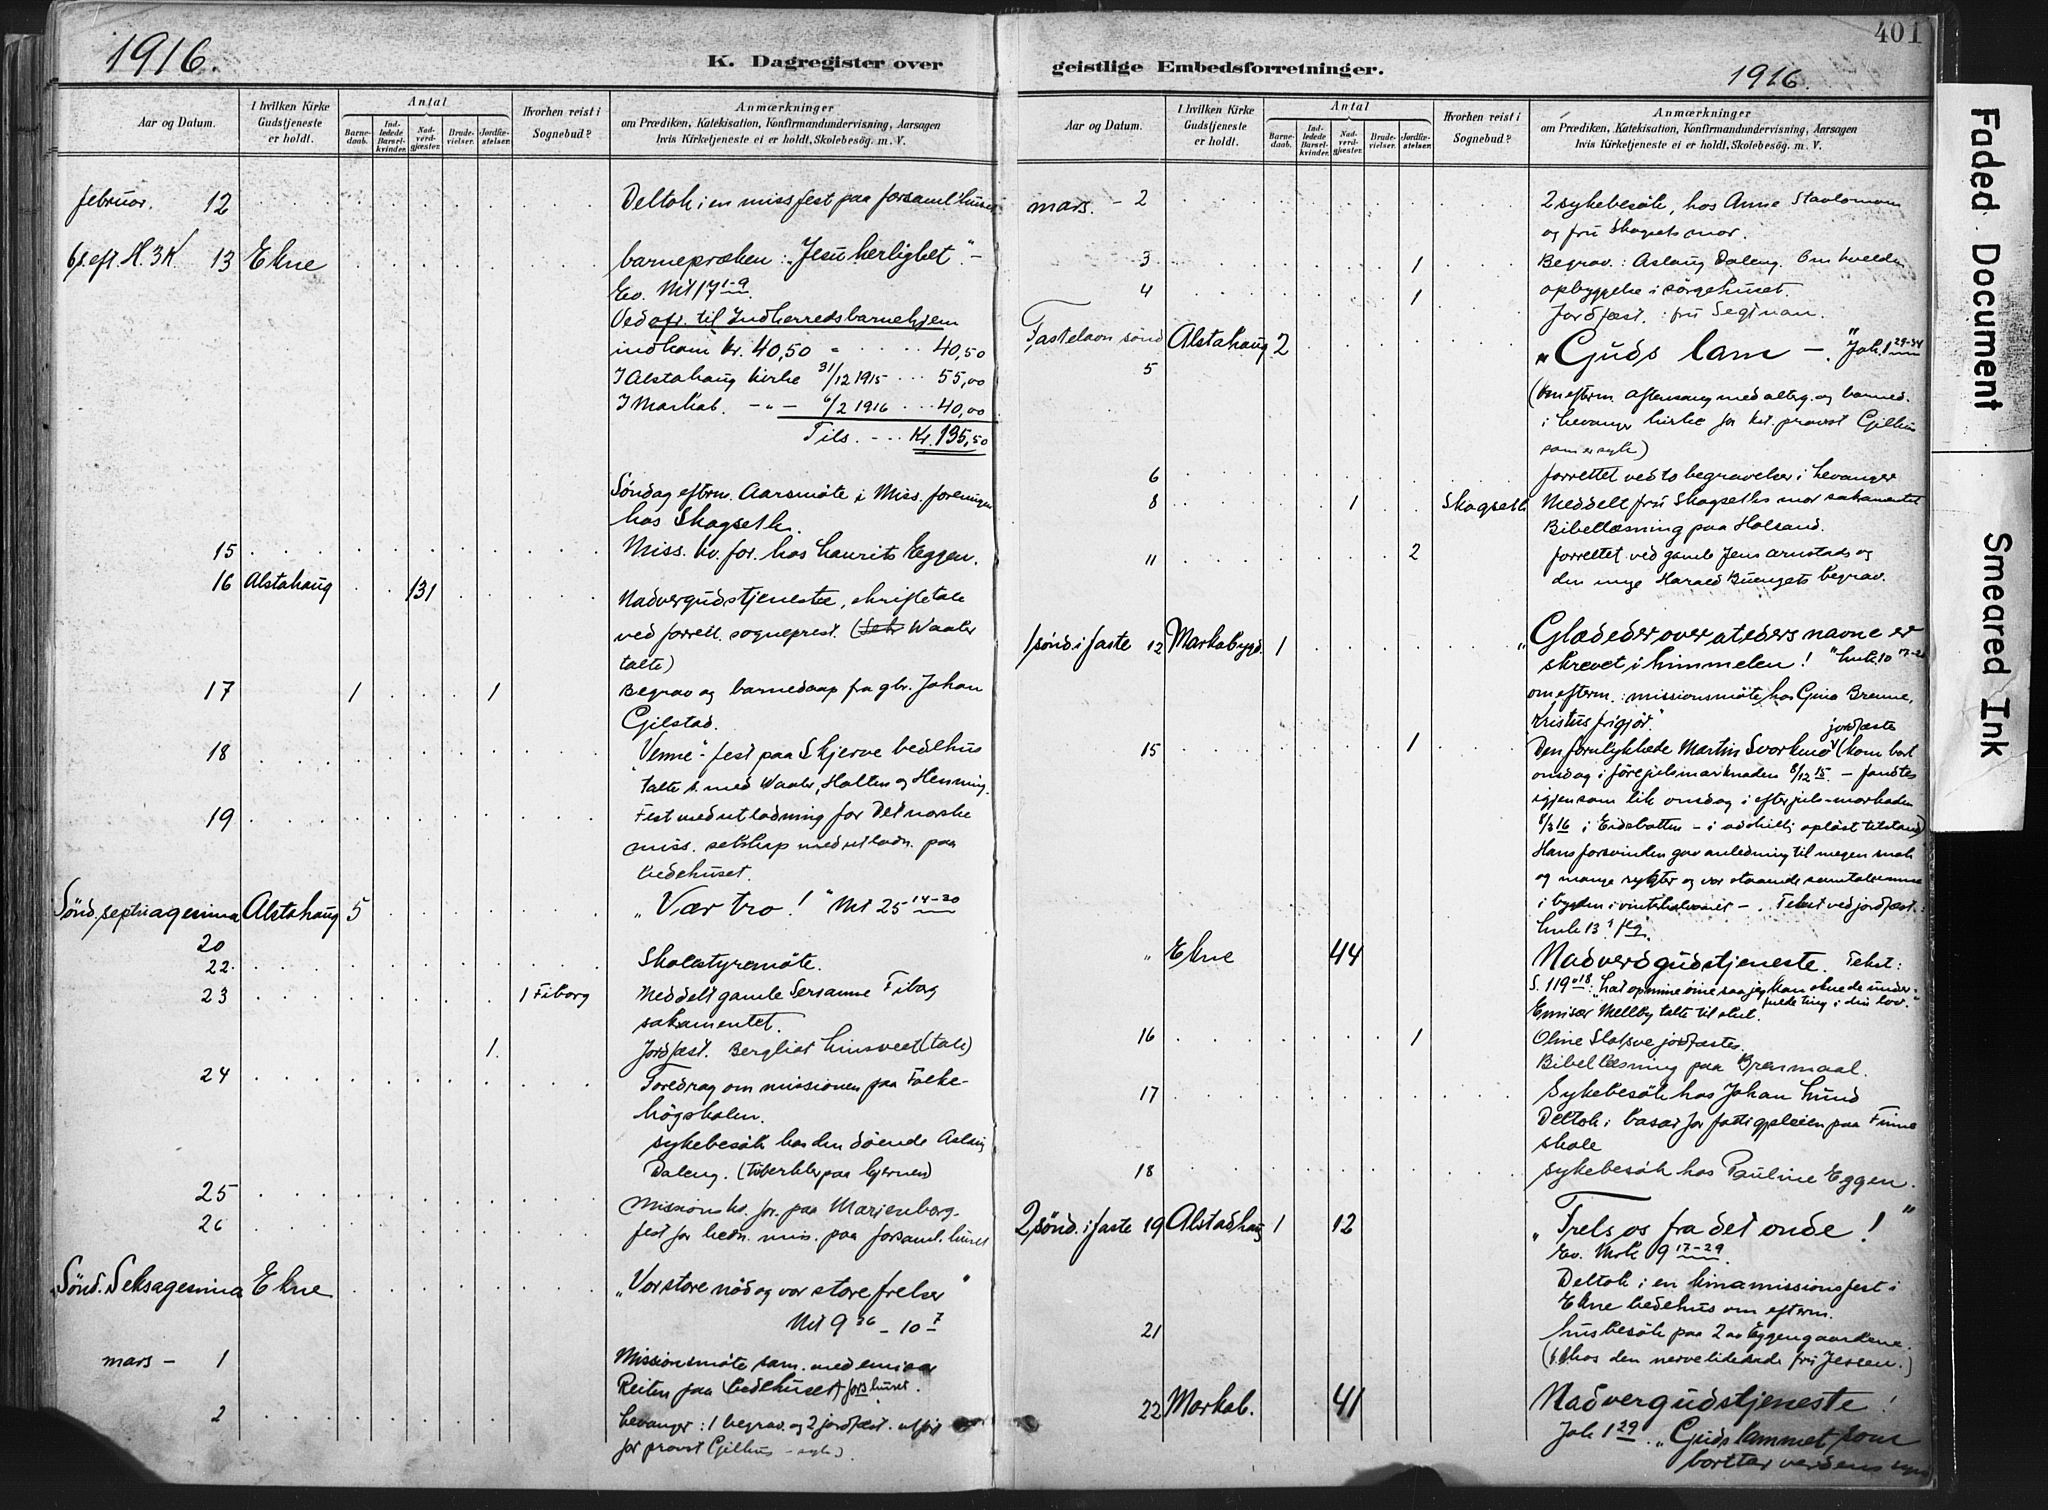 1916.
K. Dagregister over
Aar og Datum.
I hvilken Kirke Gudstjeneste er holdt.
Antal
Barne-daab.
Ind-ledede Barsel-kvinder.
Nad-verd-gjæster.
Brude-vielser.
Jordfæ-stelser.
Hvorhen reist i Sognebud?
Anmærkninger
om Prædiken, Katekisation, Konfirmandundervisning, Aarsagen
hvis Kirketjeneste ei er holdt, Skolebesøg. m. V.
februar. 12 Deltok i en missfest paa forsamlhuset
6 s. eft H. 3 K 13 Ekne barnepræken: "Jesu herlighet". -
Ev. Mt 17 1-9.
Ved ofr. til Indherreds barnehjem
indkom kr. 40,50 40,50
I Alstahaug kirke 31/12 1915 55,00
I Markab. -"- 6/2 1916 40,00
Tils. Kr. 135,50
Søndag efterm. Aarsmøte i Miss. foreningen
hos Skogseth.
15 Miss. kv. for. hos Laurits Eggen.
16 Alstahaug 131 Nadvergudstjeneste, skriftetale
ved forrett. sogneprest. (Waaler
talte)
17 1 1 Begrav og barnedaap fra gbr. Johan
Gilstad.
18 "Venne"-fest paa Skjerve bedehus
talte s. med Waaler, Holten og Henning.
19 Fest med utlodning for Det norske
miss. selskap med utlodn. paa
bedehuset.
Sønd. septuagesima Alstahaug 5 "Vær tro!" Mt 25 14-20
20
22 Skolestyremøte.
23 1 Fiborg Meddelt gamle Serianne Fiborg
sakramentet.
1. Jordfæst. Bergliot (tale)
24 Foredrag om missionen paa Folke-
høgskolen.
sykebesøk hos den døende Aslaug
Daleng. (tuberkler paa hjernen)
25 Missionskv. for. paa Marienborg.
26 fest for hedn. mis. paa forsaml. huset
Sønd. Seksagesima Ekne "Vor store nød og vor store frelser"
Mt 9 36 - 10 7
mars - 1 Missionsmøte sam. med emissær
Reiten paa (bedehuset) forshuset.
2 Levanger: 1 begrav. og 2 jordfæst. utført
for provst Gjelhus - syk)
401
geistlige Embedsforretninger.
1916.
Aar og Datum.
I hvilken Kirke Gudstjeneste er holdt.
Antal
Barne-daab.
Ind-ledede Barsel-kvinder.
Nad-verd-gjæster.
Brude-vielser.
Jordfæ-stelser.
Hvorhen reist i Sognebud?
Anmærkninger
om Prædiken, Katekisation, Konfirmandundervisning, Aarsagen
hvis Kirketjeneste ei er holdt, Skolebesøg. m. V.
mars. - 2 2 sykebesøk, hos Anne
og fru Skogseths mor.
3 1 Begrav.: Aslaug Daleng. Om kvelden
4 1 opbyggelse i sørgehuset.
Jordfæst.: fru Segtnan.
Fastelavn sønd Alstahaug 2 "Guds lam -." Joh. 1 29-34
5
(Om efterm. Aftensang med alterg. og barned.
i Levanger kirke for kst. provst Gjelhus
som er syk)
6 forrettet ved to begravelser i Levanger
8 1 Skogseth Meddelt fru Skogseths mor sakramentet
Bibellæsning paa Holsand.
11 2 forrettet ved gamle Jens Arnstads og
den unge Harald Buengets begrav.
1 sønd i faste 12 Markabygd. 1 "Glæd eder over at eders navne er
skrevet i himmelen!" Luk. 10 17-20
om efterm.: missionsmøte hos Gina Brenne,
Kristus frigjør".
jordfæste
15 1 Den forulykkede Martin Svorkmo (kom bort
onsdag i førejulsmarknaden 8/12 15. - fandtes
igjen som lik onsdag i efterjuls-markaden
8/3 16 i Eidsbotten - i adskillig opløst tilstand)
Hans forsvinden gav anledning til megen snak
og mange rykter og var staaende samtaleemne
i bygden i vinterhalvaaret -. Tekst ved jordfæst.:
Luk 13 1 flg.
" Ekne 44 Nadverdgudstjeneste. Tekst:
S. 119 18: "Lat op mine øine saa jeg kan skue de under-
fulde ting i din lov."
Emisær Mellby talte til slut.
16 1 Oline Slapsve jordfæstes.
Bibellæsning paa Brenmoal.
17 Sykebesøk hos Johan Lund
Deltok i basar for fattigpleien paa Finne
skole
18 sykebesøk hos Pauline Eggen.
2 sønd. i faste 19 Alstadhaug 1 12 "Frels os fra det onde!"
Ev. Mrk 9 17-29.
Deltok i en kinamissionsfest i
Ekne bedehus om efterm.
21 husbesøk paa 2 av Eggengaardene.
(bl. hos den nervelidende fru Jessen.)
22 Markab. 41 Nadvergudstjeneste!
Joh 1 29. "Guds lammet som
borttar verdens
Faded Document
Smeared Ink